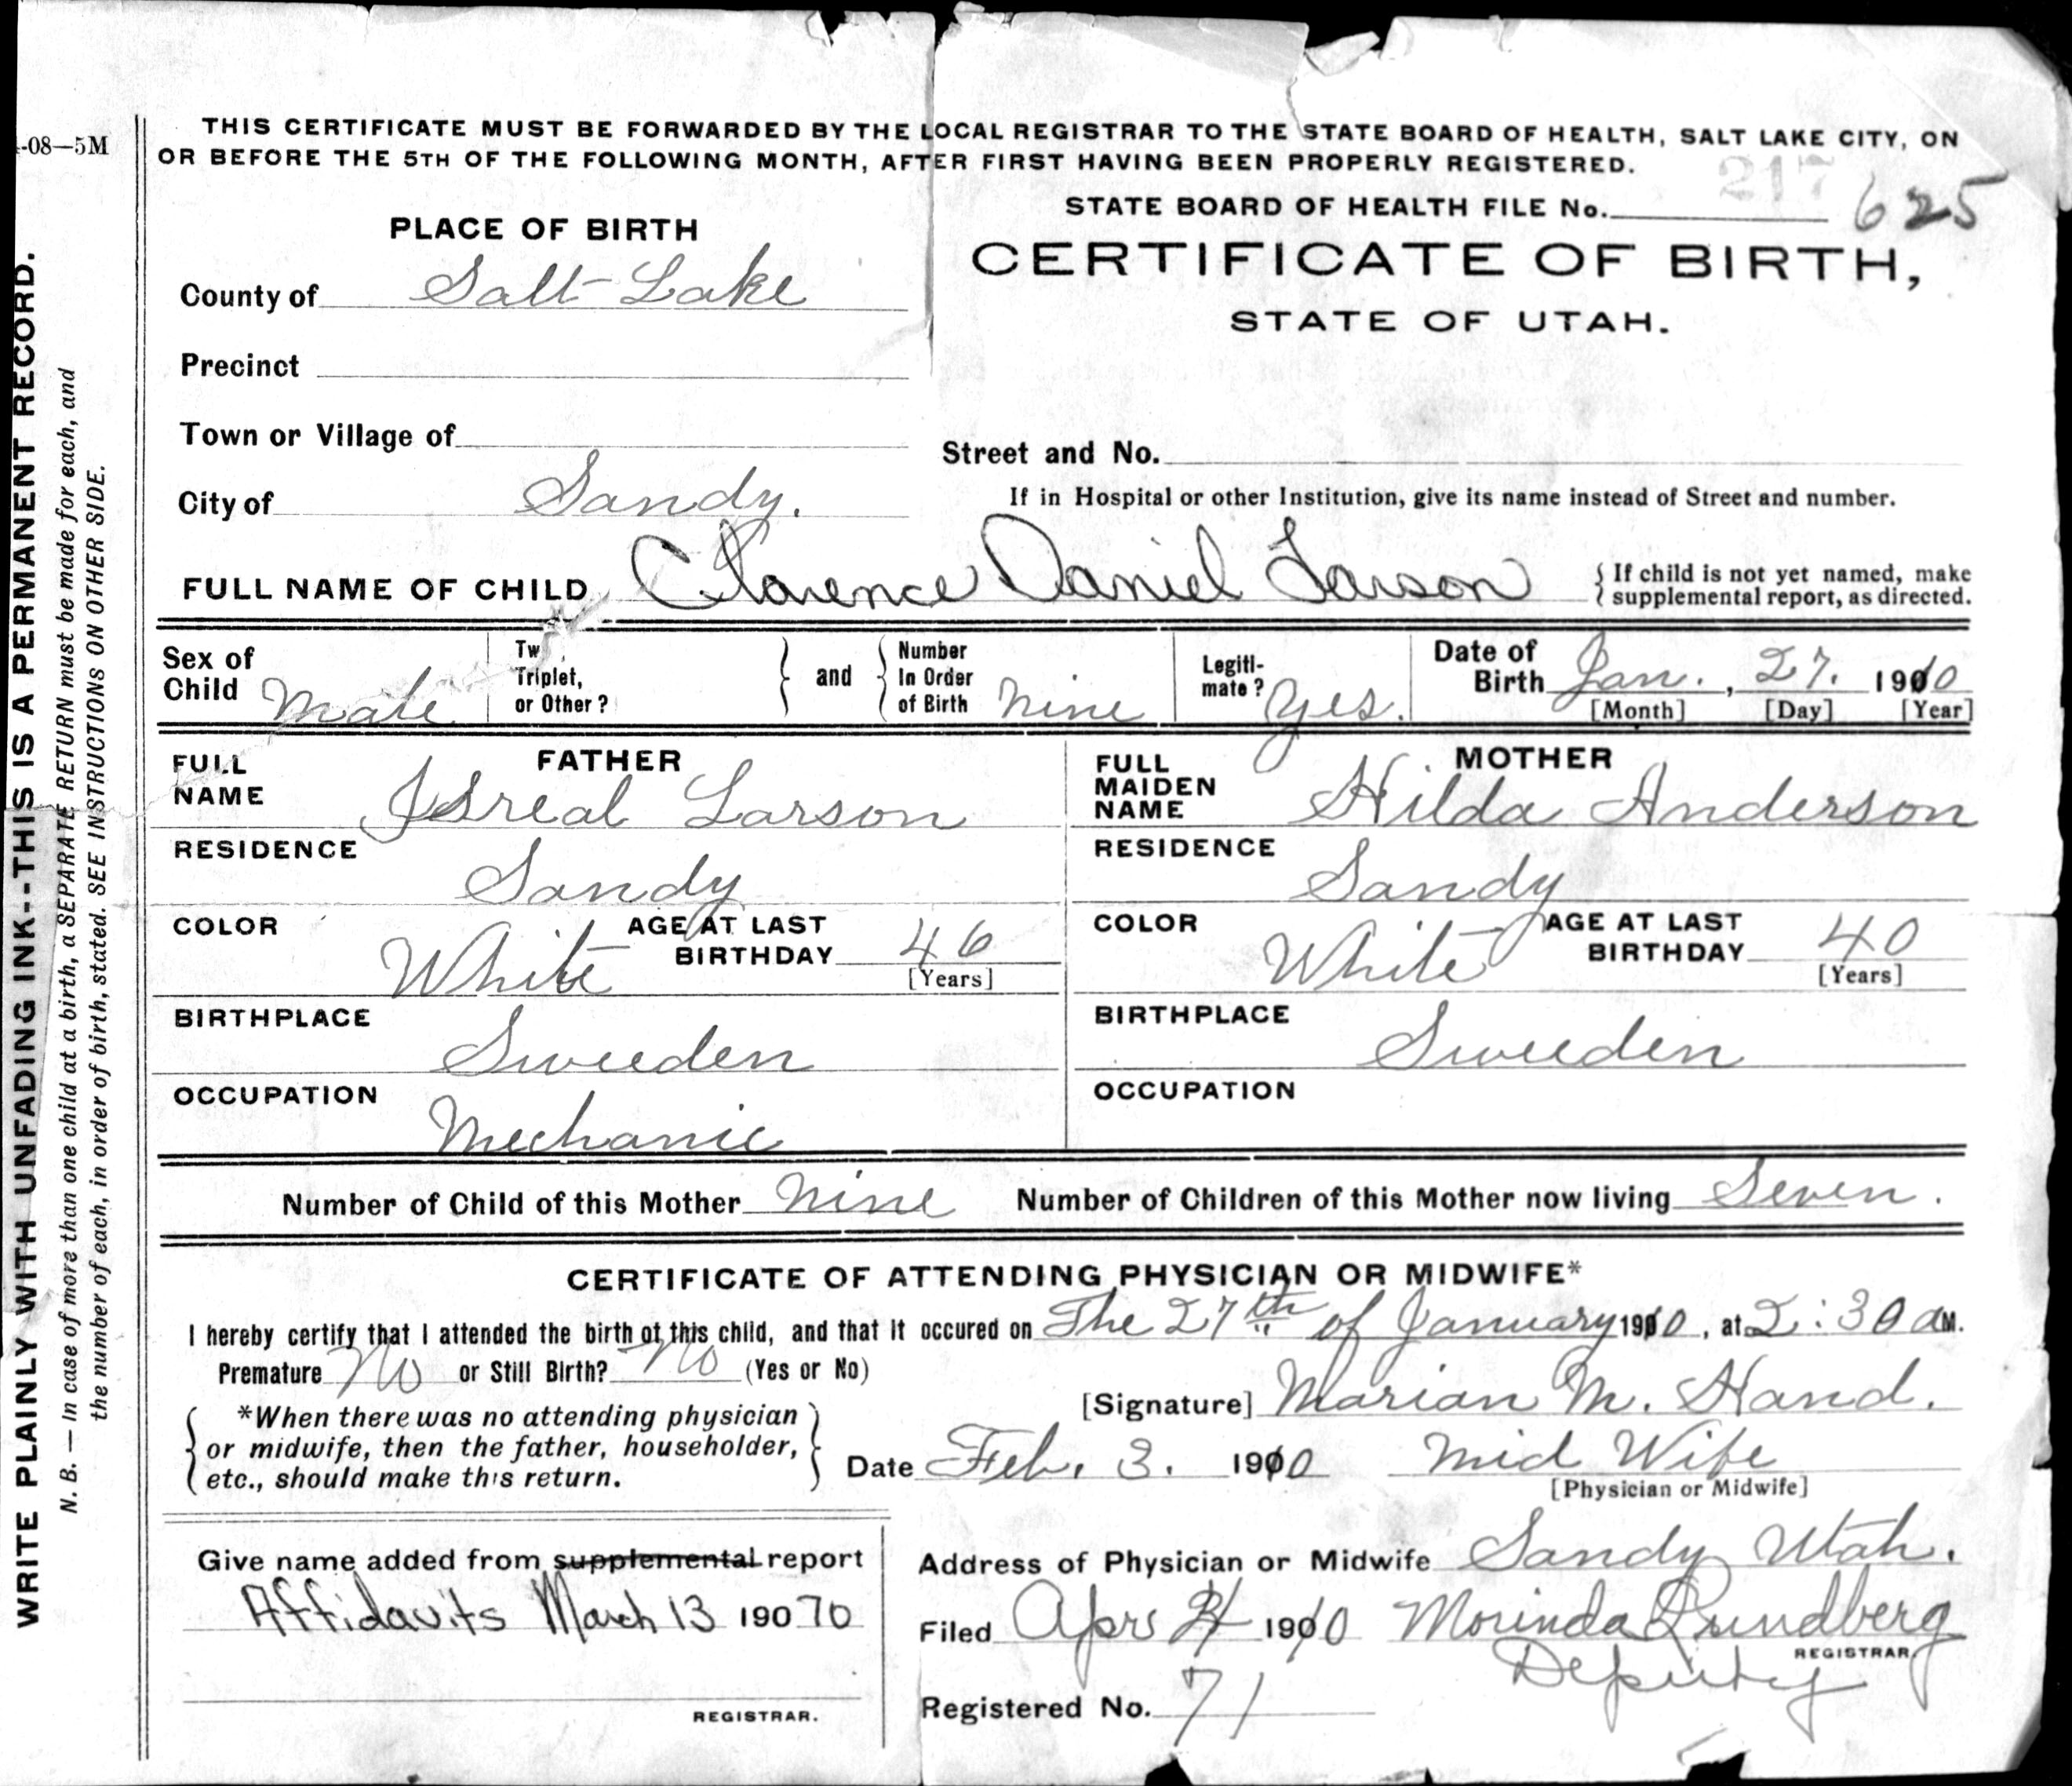 -08—5M
WRITE PLAINLY WITH UNFADING INK--THIS IS A PERMANENT RECORD.
N. B. — In case of more than one child at a birth, a SEPARATE RETURN must be made for each, and
the number of each, in order of birth, stated. SEE INSTRUCTIONS ON OTHER SIDE.
THIS CERTIFICATE MUST BE FORWARDED BY THE LOCAL REGISTRAR TO THE STATE BOARD OF HEALTH, SALT LAKE CITY, ON
OR BEFORE THE 5TH OF THE FOLLOWING MONTH, AFTER FIRST HAVING BEEN PROPERLY REGISTERED.
217
STATE BOARD OF HEALTH FILE No. 625
CERTIFICATE OF BIRTH,
STATE OF UTAH.
PLACE OF BIRTH
County of Salt Lake
Precinct
Town or Village of
City of Sandy.
Street and No.
If in Hospital or other Institution, give its name instead of Street and number.
FULL NAME OF CHILD Clarence Daniel Larson
{ If child is not yet named, make
supplemental report, as directed.
Sex of Child Male
Tw
Triplet,
or Other?
} and {
Number
In Order
of Birth nine
Legiti-
mate? yes.
Date of
Birth Jan. , 27. 1910
[Month] [Day] [Year]
FATHER
FULL
NAME Isreal Larson
RESIDENCE
Sandy
COLOR White
AGE AT LAST
BIRTHDAY 46
[Years]
BIRTHPLACE
Sweeden
OCCUPATION
Mechanic
MOTHER
FULL
MAIDEN
NAME Hilda Anderson
RESIDENCE
Sandy
COLOR White
AGE AT LAST
BIRTHDAY 40
[Years]
BIRTHPLACE
Sweeden
OCCUPATION
Number of Child of this Mother nine Number of Children of this Mother now living Seven.
CERTIFICATE OF ATTENDING PHYSICIAN OR MIDWIFE*
I hereby certify that I attended the birth of this child, and that it occured on The 27th of January 1910, at 2:30 a M.
Premature No or Still Birth? No (Yes or No)
[Signature] Marian M. Hand.
{ *When there was no attending physician
or midwife, then the father, householder,
etc., should make this return. }
Date Feb. 3. 1910 Mid Wife
[Physician or Midwife]
Give name added from supplemental report
Affidavits March 13 190 70
REGISTRAR.
Address of Physician or Midwife Sandy Utah.
Filed Apr 1910 Morinda Lundberg
REGISTRAR.
Deputy
Registered No. 71